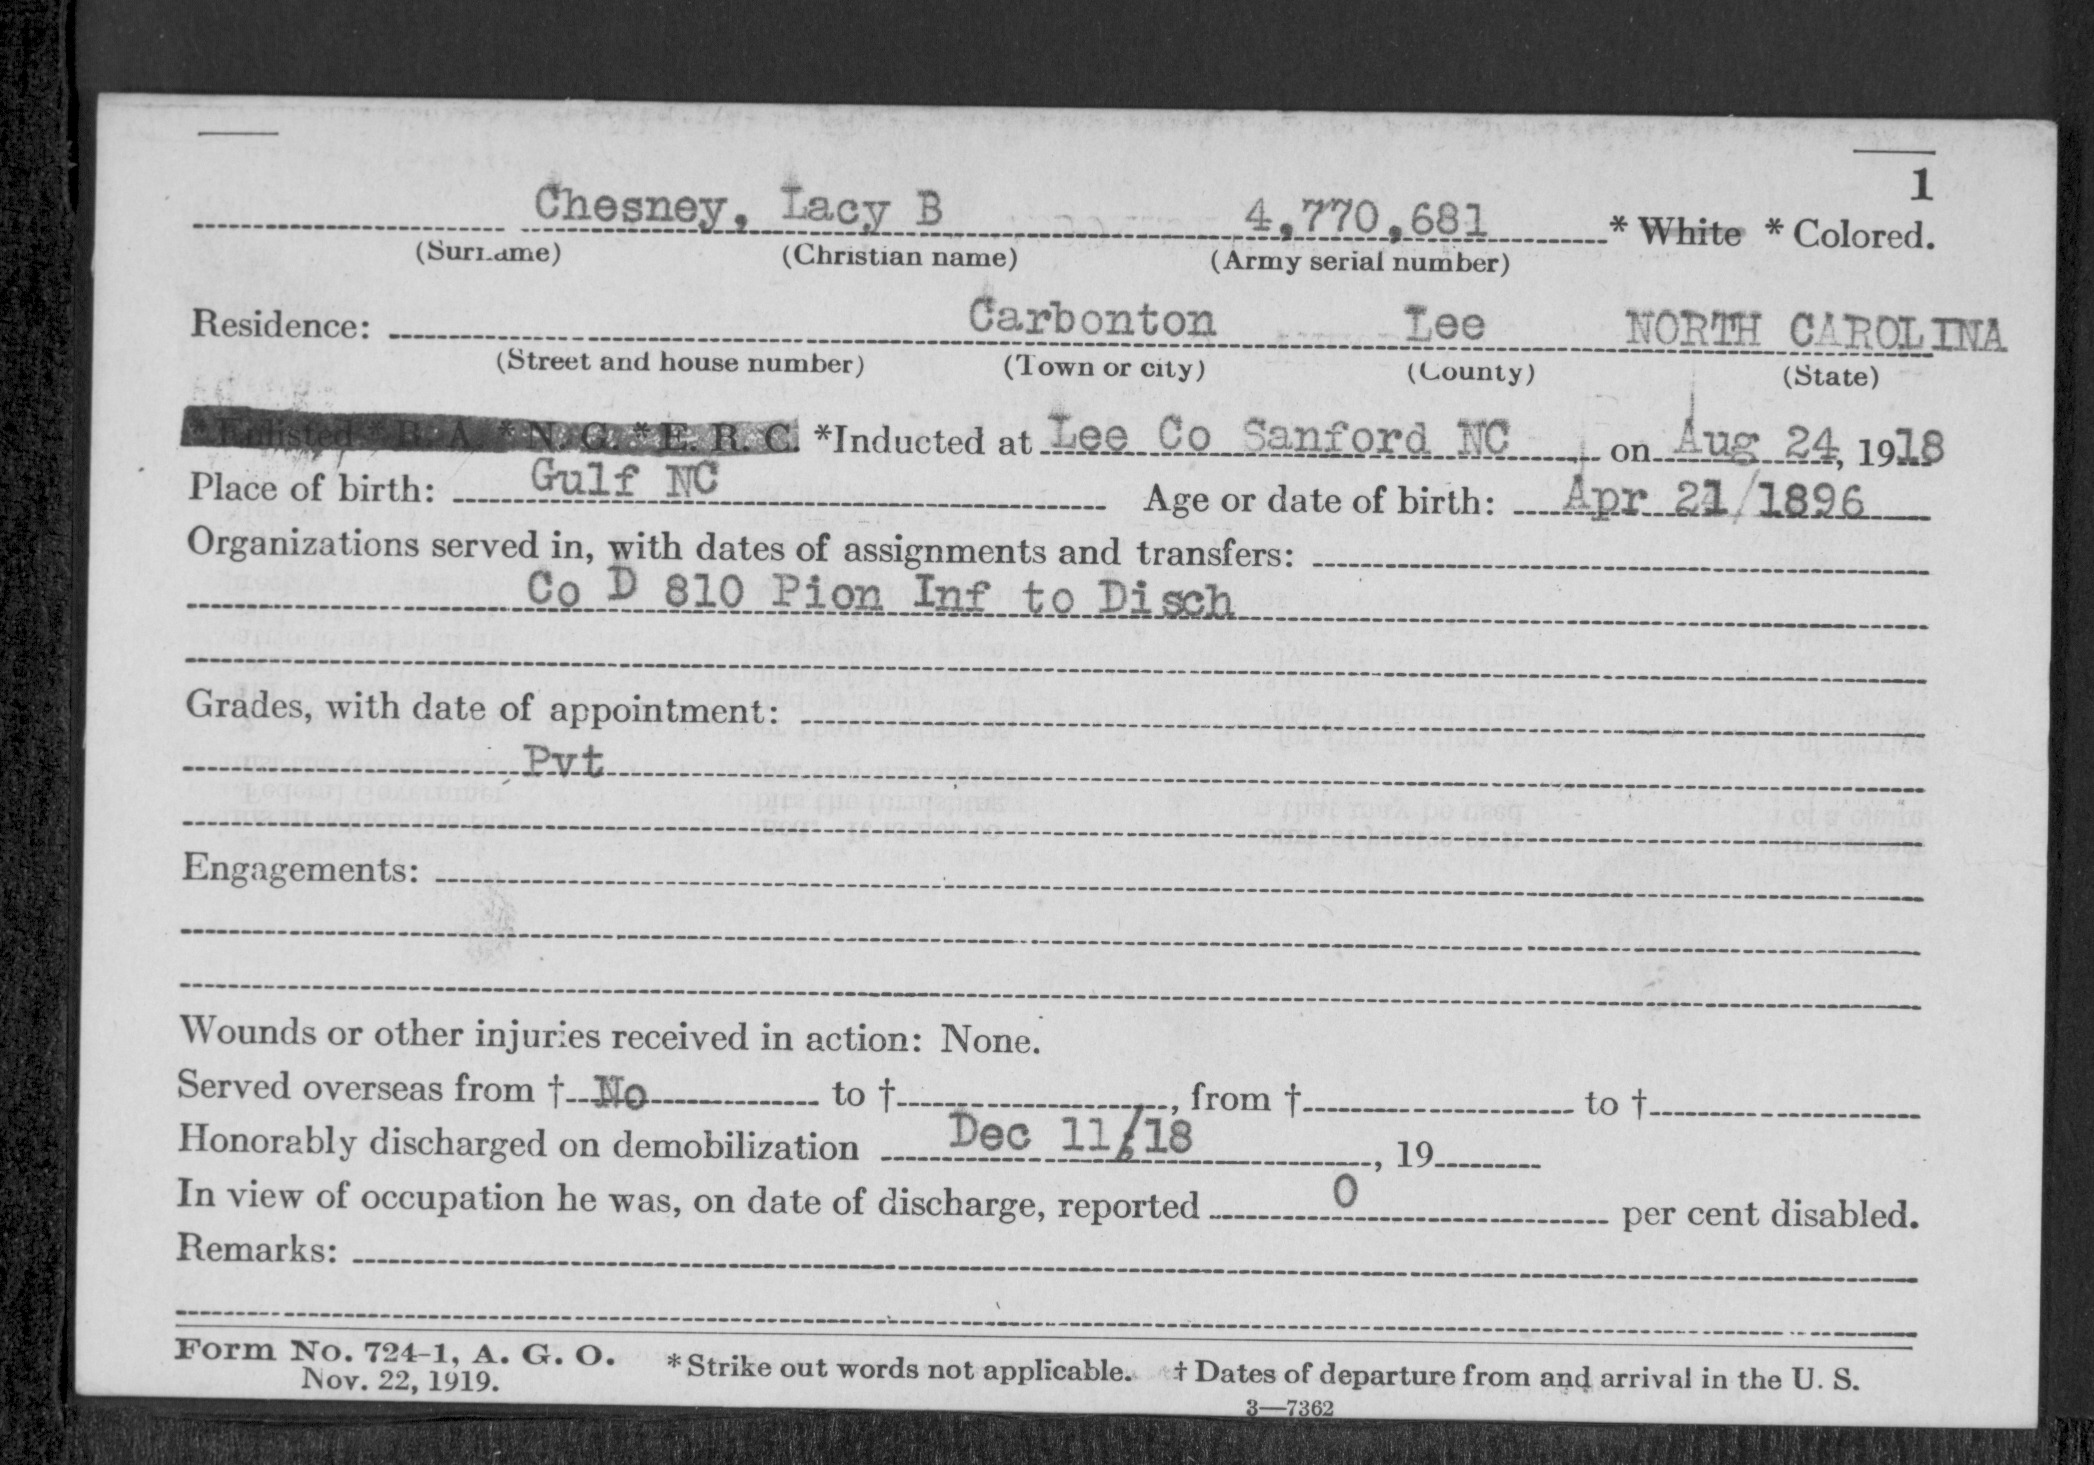 1
Chesney, Lacy B 4,770,681 * White * Colored.
(Surname) (Christian name) (Army serial number)
Residence: Carbonton Lee NORTH CAROLINA
(Street and house number) (Town or city) (County) (State)
* Enlisted * R. A. * N. G. * E. R. C. *Inducted at Lee Co Sanford NC on Aug 24, 1918
Place of birth: Gulf NC Age or date of birth: Apr 21/1896
Organizations served in, with dates of assignments and transfers:
Co D 810 Pion Inf to Disch
Grades, with date of appointment:
Pvt
Engagements:
Wounds or other injuries received in action: None.
Served overseas from † No to †, from † to †
Honorably discharged on demobilization Dec 11/18, 19
In view of occupation he was, on date of discharge, reported 0 per cent disabled.
Remarks:
Form No. 724-1, A. G. O. * Strike out words not applicable. † Dates of departure from and arrival in the U. S.
Nov. 22, 1919.
3—7362